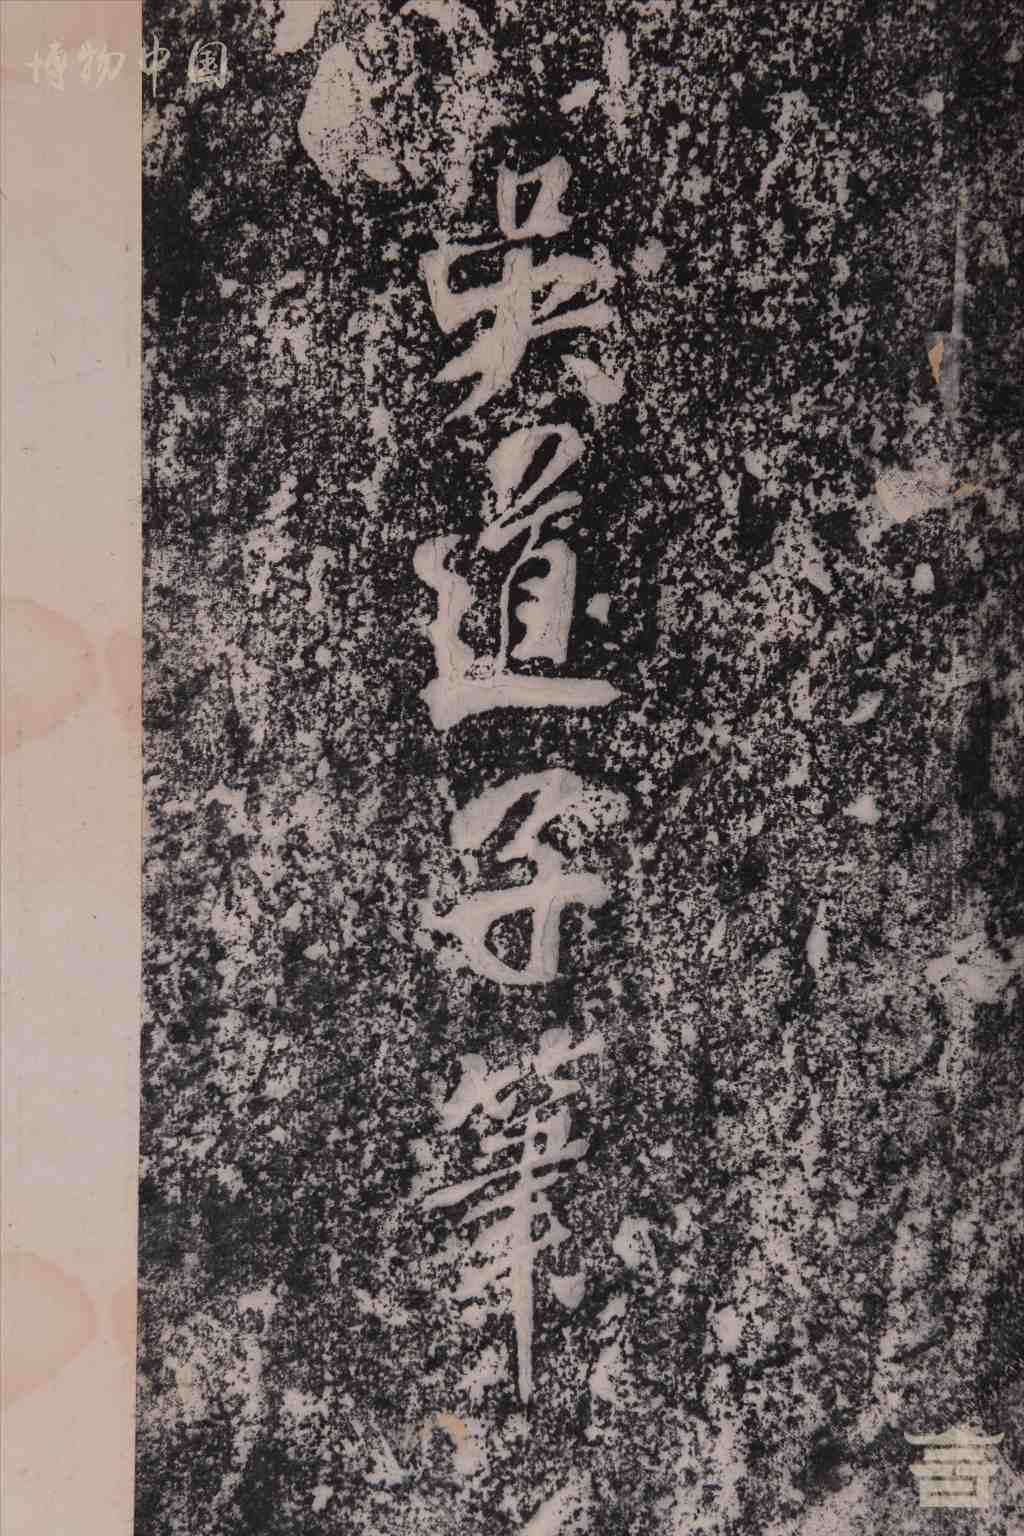 博物中国
吴道子筆